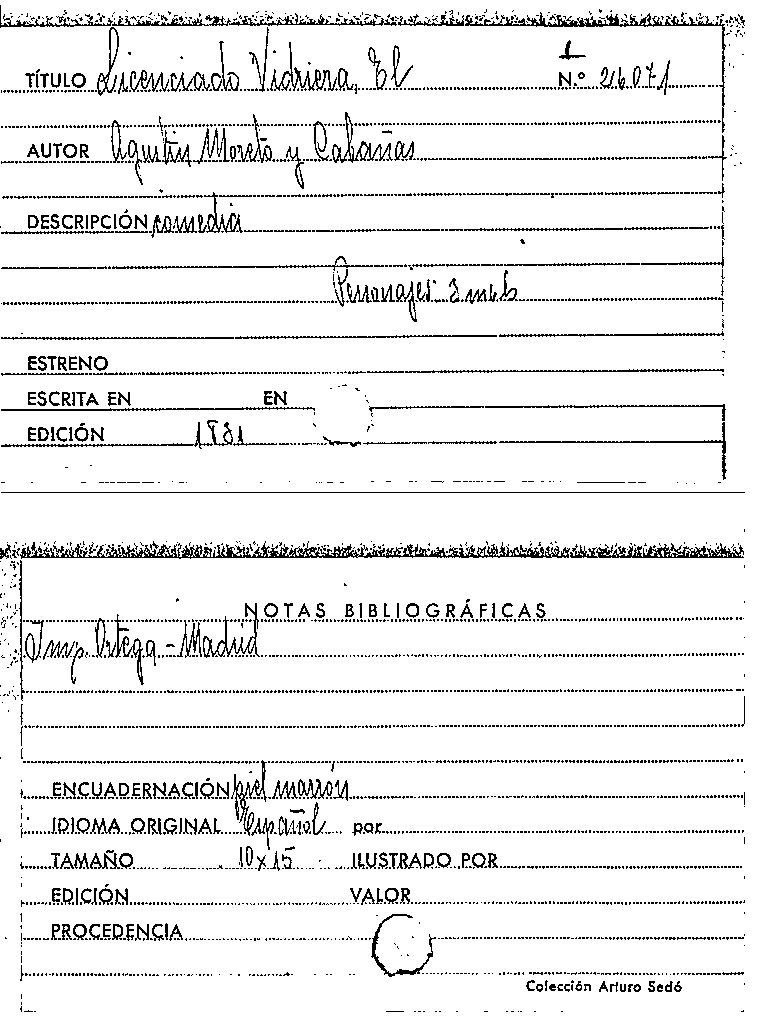 1
TÍTULO Licenciado Vidriera, El N.º 26071
AUTOR Agustín Moreto y Cabañas
DESCRIPCIÓN comedia
Personajes: 3 m
ESTRENO
ESCRITA EN EN
EDICIÓN 1831
NOTAS BIBLIOGRÁFICAS
Imp. Ortega - Madrid
ENCUADERNACIÓN piel marrón
IDIOMA ORIGINAL Español por
TAMAÑO 10x15 ILUSTRADO POR
EDICIÓN VALOR
PROCEDENCIA
Colección Arturo Sedó